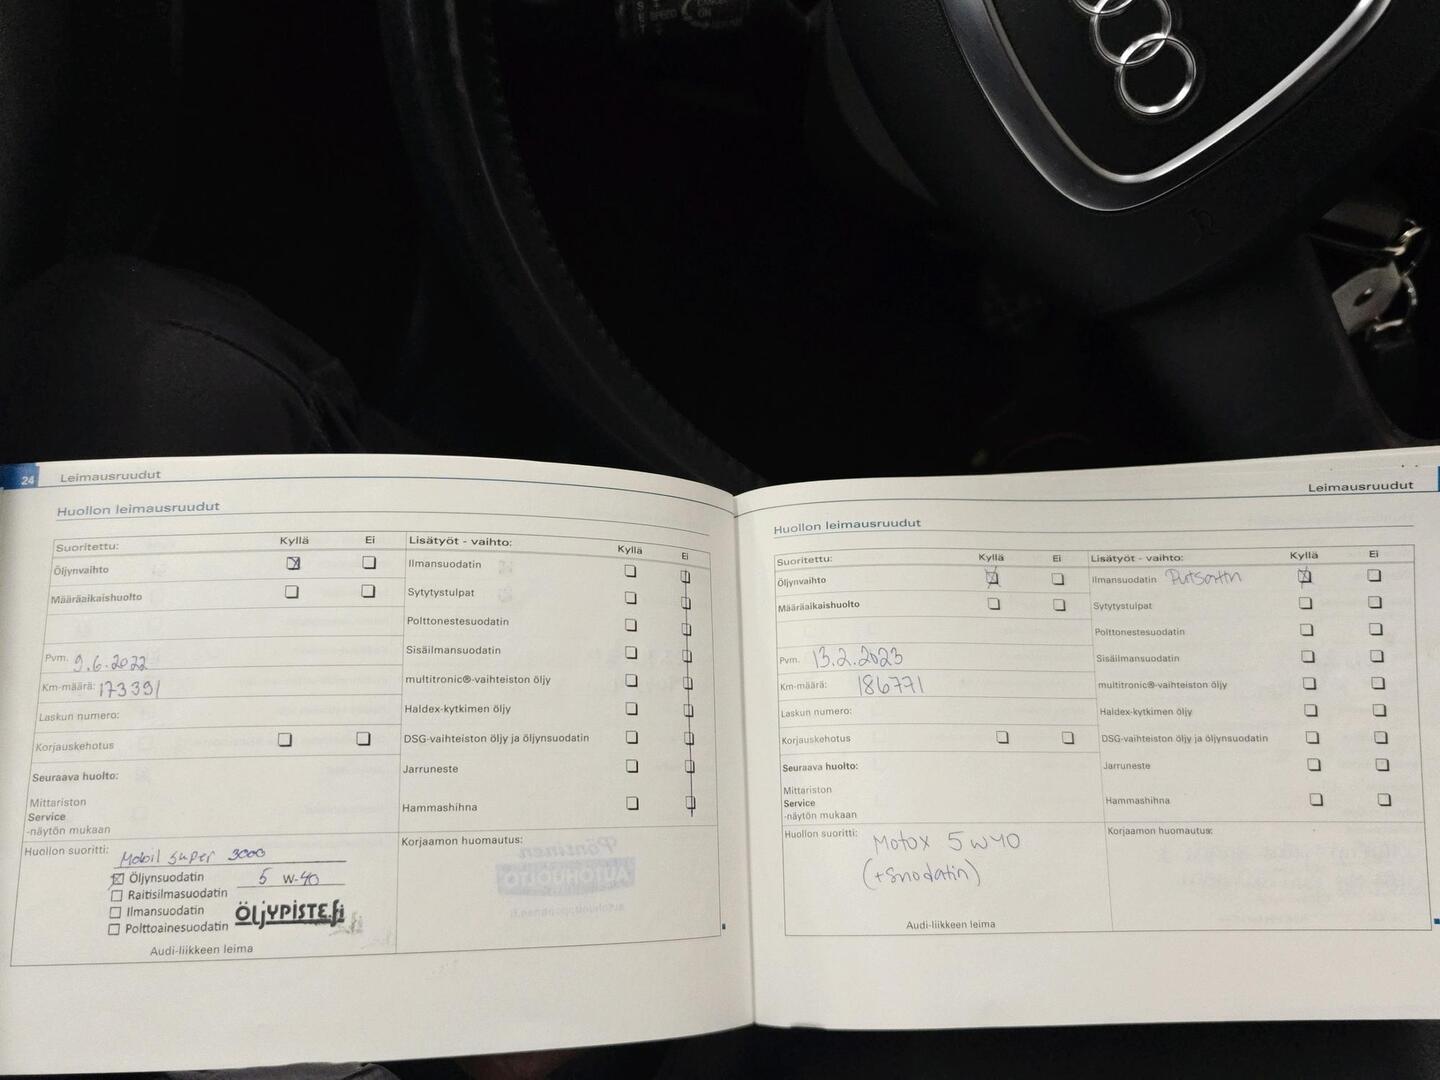 SPEED
CANCEL
ON
24
Leimausruudut
Huollon leimausruudut
Suoritettu: Kyllä Ei
Öljynvaihto
Määräaikaishuolto
Pvm. 9.6.2022
Km-määrä: 173391
Laskun numero:
Korjauskehotus
Seuraava huolto:
Mittariston
Service
-näytön mukaan
Huollon suoritti: Mobil Super 3000
Öljynsuodatin 5 W-40
Raitisilmasuodatin
Ilmansuodatin
Polttoainesuodatin
ÖLJYPISTE.fi
Audi-liikkeen leima
Lisätyöt - vaihto: Kyllä Ei
Ilmansuodatin
Sytytystulpat
Polttonestesuodatin
Sisäilmansuodatin
multitronic®-vaihteiston öljy
Haldex-kytkimen öljy
DSG-vaihteiston öljy ja öljynsuodatin
Jarruneste
Hammashihna
Korjaamon huomautus:
Leimausruudut
Huollon leimausruudut
Suoritettu: Kyllä Ei
Öljynvaihto
Määräaikaishuolto
Pvm. 13.2.2023
Km-määrä: 186771
Laskun numero:
Korjauskehotus
Seuraava huolto:
Mittariston
Service
-näytön mukaan
Huollon suoritti: Motox 5W40
(+Suodatin)
Audi-liikkeen leima
Lisätyöt - vaihto: Kyllä Ei
Ilmansuodatin
Sytytystulpat
Polttonestesuodatin
Sisäilmansuodatin
multitronic®-vaihteiston öljy
Haldex-kytkimen öljy
DSG-vaihteiston öljy ja öljynsuodatin
Jarruneste
Hammashihna
Korjaamon huomautus: